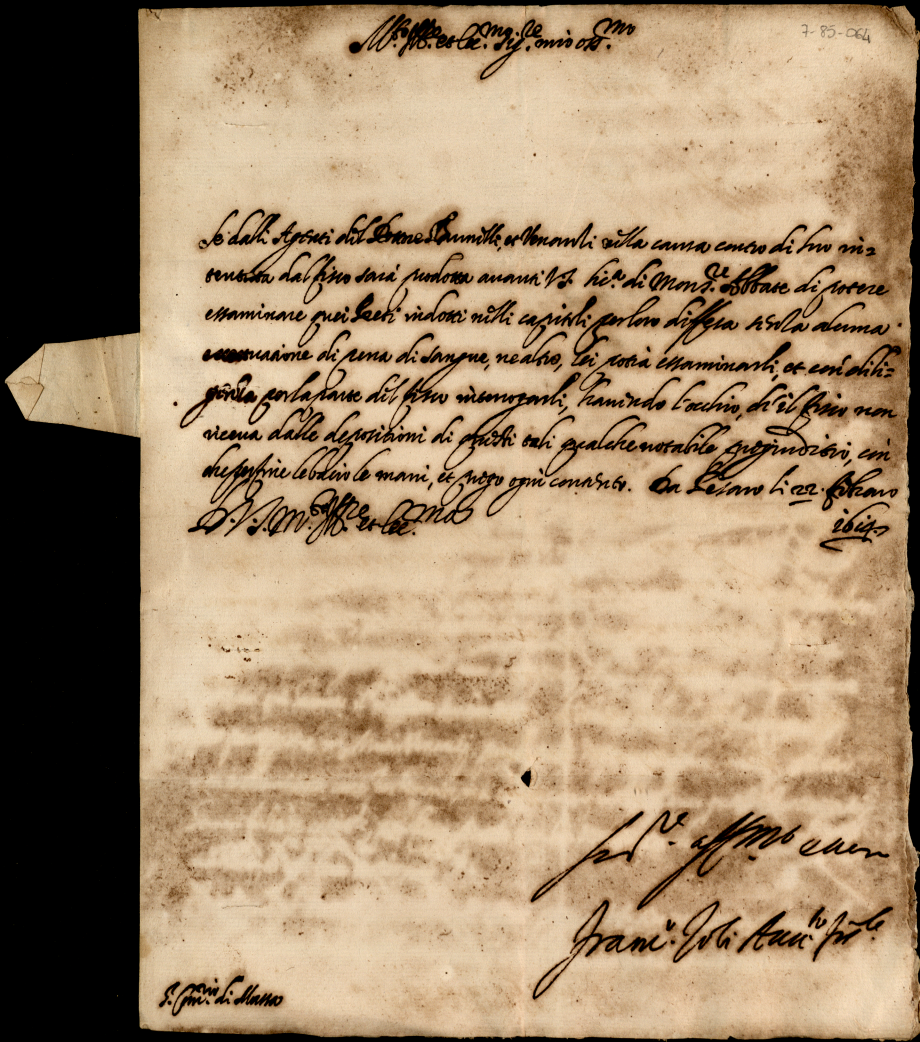 7-85-064
M.to Ill.re et Ecc.mo Sig.re mio oss.mo
Se dalli Agenti del et Venanli nella causa contro di loro in=
tentata dal fisco sarà prodotta avanti VS. lic.a di Mons.re Abbate di potere
essaminare quei Preti indotti nelli capitoli per loro diffesa senza alcuna
di pena di sangue, ne altro, lei potrà essaminarli, et con dili=
genza per la parte del fisco interrogarli, havendo l'occhio, ch'il fisco non
riceva dalle depositioni di questi tali qualche notabile pregiuditio, con
che per fine le bacio le mani, et prego ogni contento. Da Pesaro li 22. febraro
D. V. S. M.to Ill.re et Ecc.ma 1614
Ser.re aff.mo
Franc.o
S. di Massa